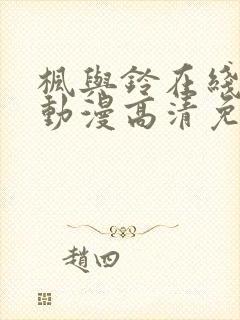 楓與鈴在綫
動漫高清免
趙四